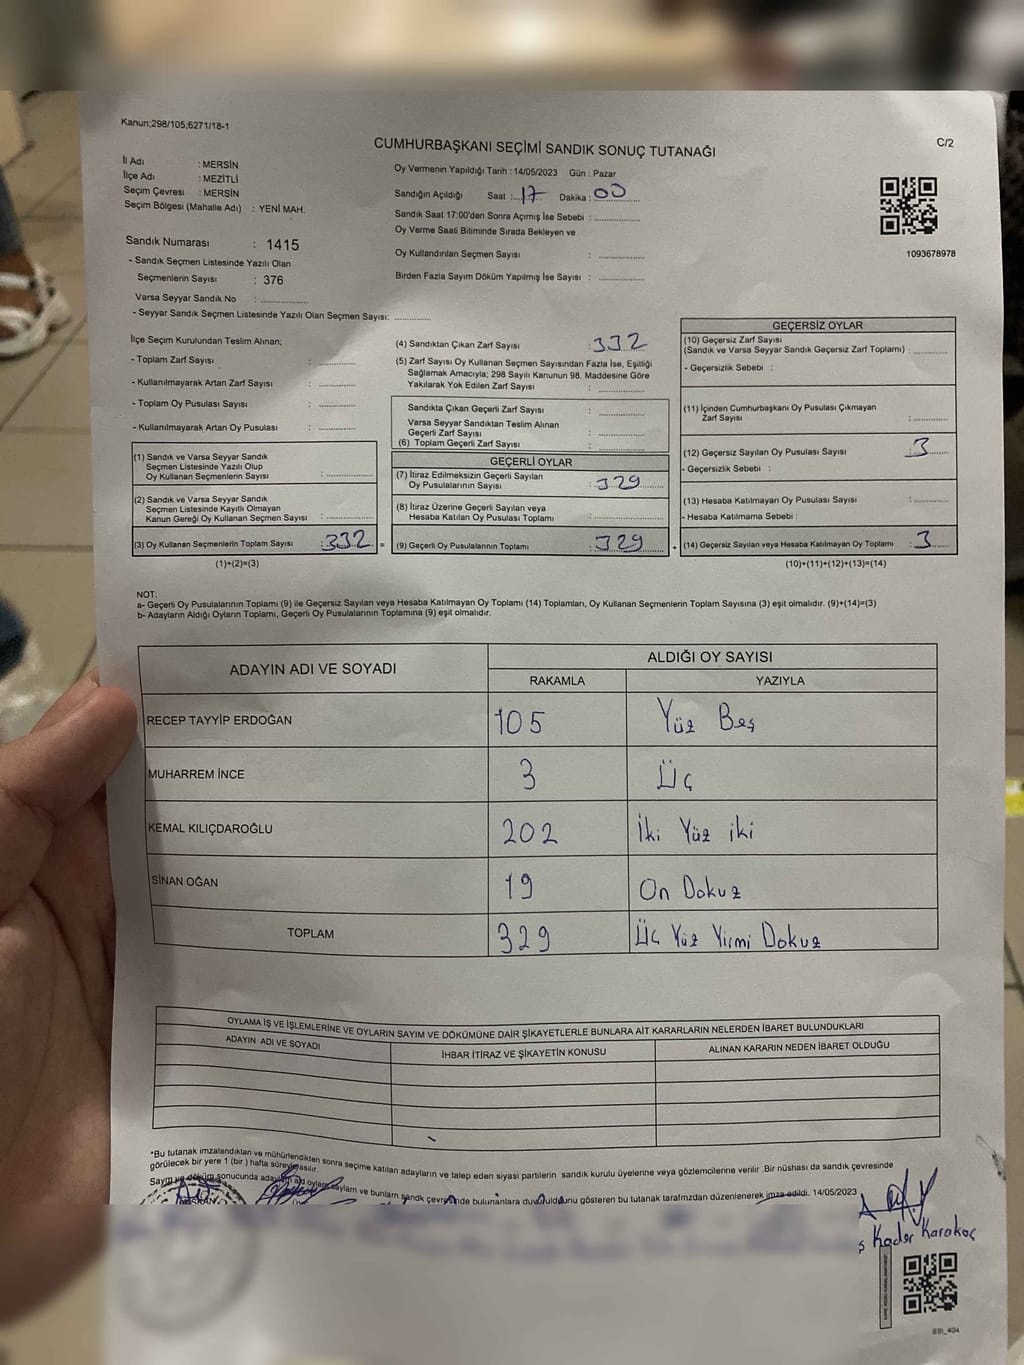 Kanun;298/105;6271/18-1
CUMHURBAŞKANI SEÇİMİ SANDIK SONUÇ TUTANAĞI
C/2
İl Adı : MERSİN
İlçe Adı : MEZİTLİ
Seçim Çevresi : MERSİN
Seçim Bölgesi (Mahalle Adı) : YENİ MAH.
Oy Vermenin Yapıldığı Tarih : 14/05/2023 Gün : Pazar
Sandığın Açıldığı Saat : 17 Dakika : 00
Sandık Saat 17:00'den Sonra Açımış İse Sebebi :
Oy Verme Saati Bitiminde Sırada Bekleyen ve
Oy Kullandırılan Seçmen Sayısı :
Birden Fazla Sayım Döküm Yapılmış İse Sayısı :
1093678978
Sandık Numarası : 1415
- Sandık Seçmen Listesinde Yazılı Olan
Seçmenlerin Sayısı : 376
Varsa Seyyar Sandık No :
- Seyyar Sandık Seçmen Listesinde Yazılı Olan Seçmen Sayısı:
İlçe Seçim Kurulundan Teslim Alınan;
- Toplam Zarf Sayısı :
- Kullanılmayarak Artan Zarf Sayısı :
- Toplam Oy Pusulası Sayısı :
- Kullanılmayarak Artan Oy Pusulası :
(1) Sandık ve Varsa Seyyar Sandık
Seçmen Listesinde Yazılı Olup
Oy Kullanan Seçmenlerin Sayısı :
(2) Sandık ve Varsa Seyyar Sandık
Seçmen Listesinde Kayıtlı Olmayan
Kanun Gereği Oy Kullanan Seçmen Sayısı :
(3) Oy Kullanan Seçmenlerin Toplam Sayısı : 332
(1)+(2)=(3)
(4) Sandıktan Çıkan Zarf Sayısı : 332
(5) Zarf Sayısı Oy Kullanan Seçmen Sayısından Fazla İse, Eşitliği
Sağlamak Amacıyla; 298 Sayılı Kanunun 98. Maddesine Göre
Yakılarak Yok Edilen Zarf Sayısı :
Sandıkta Çıkan Geçerli Zarf Sayısı :
Varsa Seyyar Sandıktan Teslim Alınan
Geçerli Zarf Sayısı :
(6) Toplam Geçerli Zarf Sayısı :
GEÇERLİ OYLAR
(7) İtiraz Edilmeksizin Geçerli Sayılan
Oy Pusulalarının Sayısı : 329
(8) İtiraz Üzerine Geçerli Sayılan veya
Hesaba Katılan Oy Pusulası Toplamı :
= (9) Geçerli Oy Pusulalarının Toplamı : 329
GEÇERSİZ OYLAR
(10) Geçersiz Zarf Sayısı
(Sandık ve Varsa Seyyar Sandık Geçersiz Zarf Toplamı) :
- Geçersizlik Sebebi :
(11) İçinden Cumhurbaşkanı Oy Pusulası Çıkmayan
Zarf Sayısı :
(12) Geçersiz Sayılan Oy Pusulası Sayısı : 3
- Geçersizlik Sebebi :
(13) Hesaba Katılmayan Oy Pusulası Sayısı :
- Hesaba Katılmama Sebebi :
+ (14) Geçersiz Sayılan veya Hesaba Katılmayan Oy Toplamı : 3
(10)+(11)+(12)+(13)=(14)
NOT:
a- Geçerli Oy Pusulalarının Toplamı (9) ile Geçersiz Sayılan veya Hesaba Katılmayan Oy Toplamı (14) Toplamları, Oy Kullanan Seçmenlerin Toplam Sayısına (3) eşit olmalıdır. (9)+(14)=(3)
b- Adayların Aldığı Oyların Toplamı, Geçerli Oy Pusulalarının Toplamına (9) eşit olmalıdır.
ADAYIN ADI VE SOYADI ALDIĞI OY SAYISI
RAKAMLA YAZIYLA
RECEP TAYYİP ERDOĞAN 105 Yüz Beş
MUHARREM İNCE 3 Üç
KEMAL KILIÇDAROĞLU 202 İki Yüz iki
SİNAN OĞAN 19 On Dokuz
TOPLAM 329 Üç Yüz Yirmi Dokuz
OYLAMA İŞ VE İŞLEMLERİNE VE OYLARIN SAYIM VE DÖKÜMÜNE DAİR ŞİKAYETLERLE BUNLARA AİT KARARLARIN NELERDEN İBARET BULUNDUKLARI
ADAYIN ADI VE SOYADI İHBAR İTİRAZ VE ŞİKAYETİN KONUSU ALINAN KARARIN NEDEN İBARET OLDUĞU
*Bu tutanak imzalandıktan ve mühürlendikten sonra seçime katılan adayların ve talep eden siyasi partilerin sandık kurulu üyelerine veya gözlemcilerine verilir .Bir nüshası da sandık çevresinde
görülecek bir yere 1 (bir) hafta süreyle asılır.
Sayım ve döküm sonucunda bulunanlara duyurulduğunu gösteren bu tutanak tarafımızdan düzenlenerek imza edildi. 14/05/2023
BAŞKAN
Kader Karakoç
SSI_404